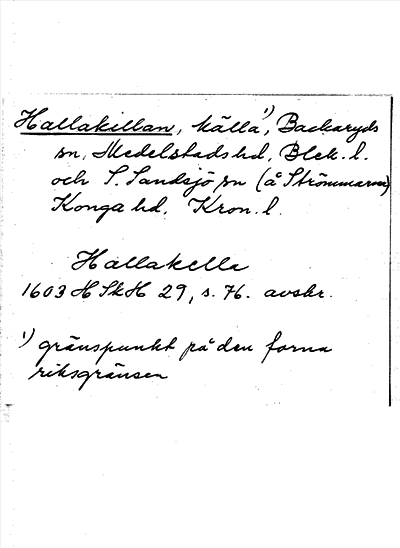 Hallakillan, källa¹), Backaryds
sn, Medelstads hd, Blek. l.
och S. Sandsjö sn (å Strömmarna)
Konga hd, Kron. l.
Hallakella
1603 H Sk H 29, s. 76. avskr.
¹) gränspunkt på den forna
riksgränsen